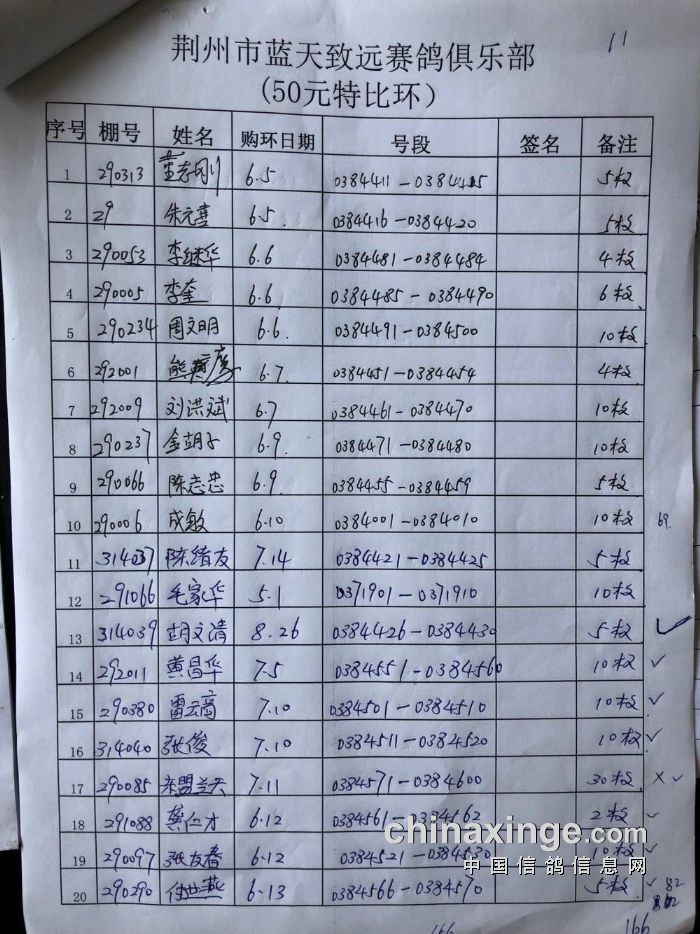 11
荆州市蓝天致远赛鸽俱乐部
(50元特比环)
序号 棚号 姓名 购环日期 号段 签名 备注
1 290313 董志刚 6.5 0384411-0384415 5枚
2 29 朱元喜 6.5 0384416-0384420 5枚
3 290053 李继华 6.6 0384481-0384484 4枚
4 290005 李奎 6.6 0384485-0384490 6枚
5 290234 周文明 6.6 0384491-0384500 10枚
6 292001 熊 6.7 0384451-0384454 4枚
7 292009 刘洪斌 6.7 0384461-0384470 10枚
8 290237 金胡子 6.9 0384471-0384480 10枚
9 290066 陈志忠 6.9 0384455-0384459 5枚
10 290006 成敏 6.10 0384001-0384010 10枚 69.
11 314037 陈绪友 7.14 0384421-0384425 5枚
12 291066 毛家华 5.1 0371901-0371910 10枚
13 314039 胡文清 8.26 0384426-0384430 5枚 ✓
14 292011 黄昌华 7.5 0384551-0384560 10枚 ✓
15 290380 雷云高 7.10 0384501-0384510 10枚 ✓
16 314040 张俊 7.10 0384511-0384520 10枚 ✓
17 290085 东盟兰天 7.11 0384571-0384600 30枚 × ✓
18 291088 龚仁才 6.12 0384561-0384562 2枚 ✓
19 290097 张友春 6.12 0384521-0384530 10枚 ✓
20 290290 付世燕 6.13 0384566-0384570 5枚 ✓ 82
chinaxinge.com
中国信鸽信息网
166
166